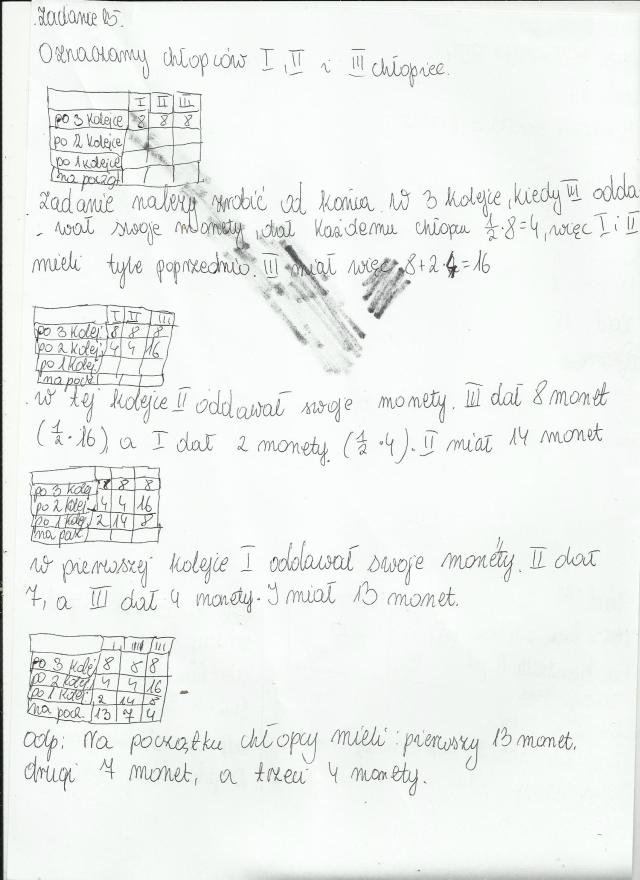 Zadanie 25.
Oznaczamy chłopców I, II i III chłopiec.
I II III
po 3 kolejce 8 8 8
po 2 kolejce
po 1 kolejce
na pocz.
Zadanie należy zrobić od końca. W 3 kolejce, kiedy III odda-
- wał swoje monety, dał każdemu chłopcu 1/2·8=4, więc I i II
mieli tyle poprzednio. III miał więc 8+2·4=16
I II III
po 3 kolej. 8 8 8
po 2 kolej. 4 4 16
po 1 kolej
na pocz.
W tej kolejce II oddawał swoje monety. III dał 8 monet
(1/2·16), a I dał 2 monety (1/2·4). II miał 14 monet
po 3 kolej 8 8 8
po 2 kolej. 4 4 16
po 1 kolej 2 14 8
na pocz.
W pierwszej kolejce I oddawał swoje monety. II dał
7, a III dał 4 monety. I miał 13 monet.
I III III
po 3 kolej 8 8 8
po 2 kolej 4 4 16
po 1 kolej 2 14 8
na pocz. 13 7 4
odp: Na początku chłopcy mieli: pierwszy 13 monet,
drugi 7 monet, a trzeci 4 monety.